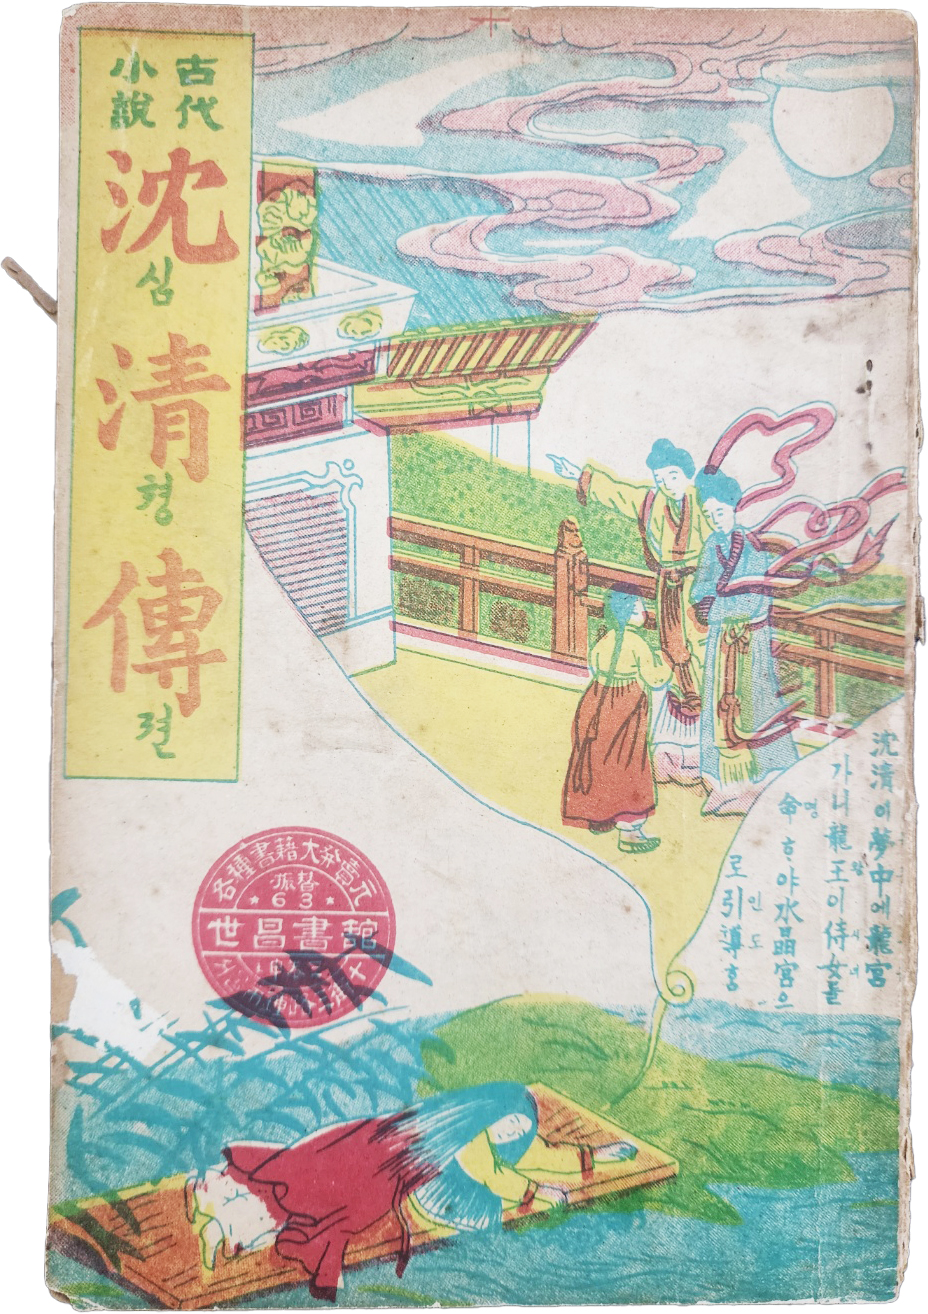 古代
小說
沈심淸쳥傳젼
沈淸이夢中에龍宮
가니龍王이侍女들
왕 시녀
命ᄒᆞ야水晶宮으
명
로引導홈
인도
各種書籍大發賣元
振替
★63★
世昌書館